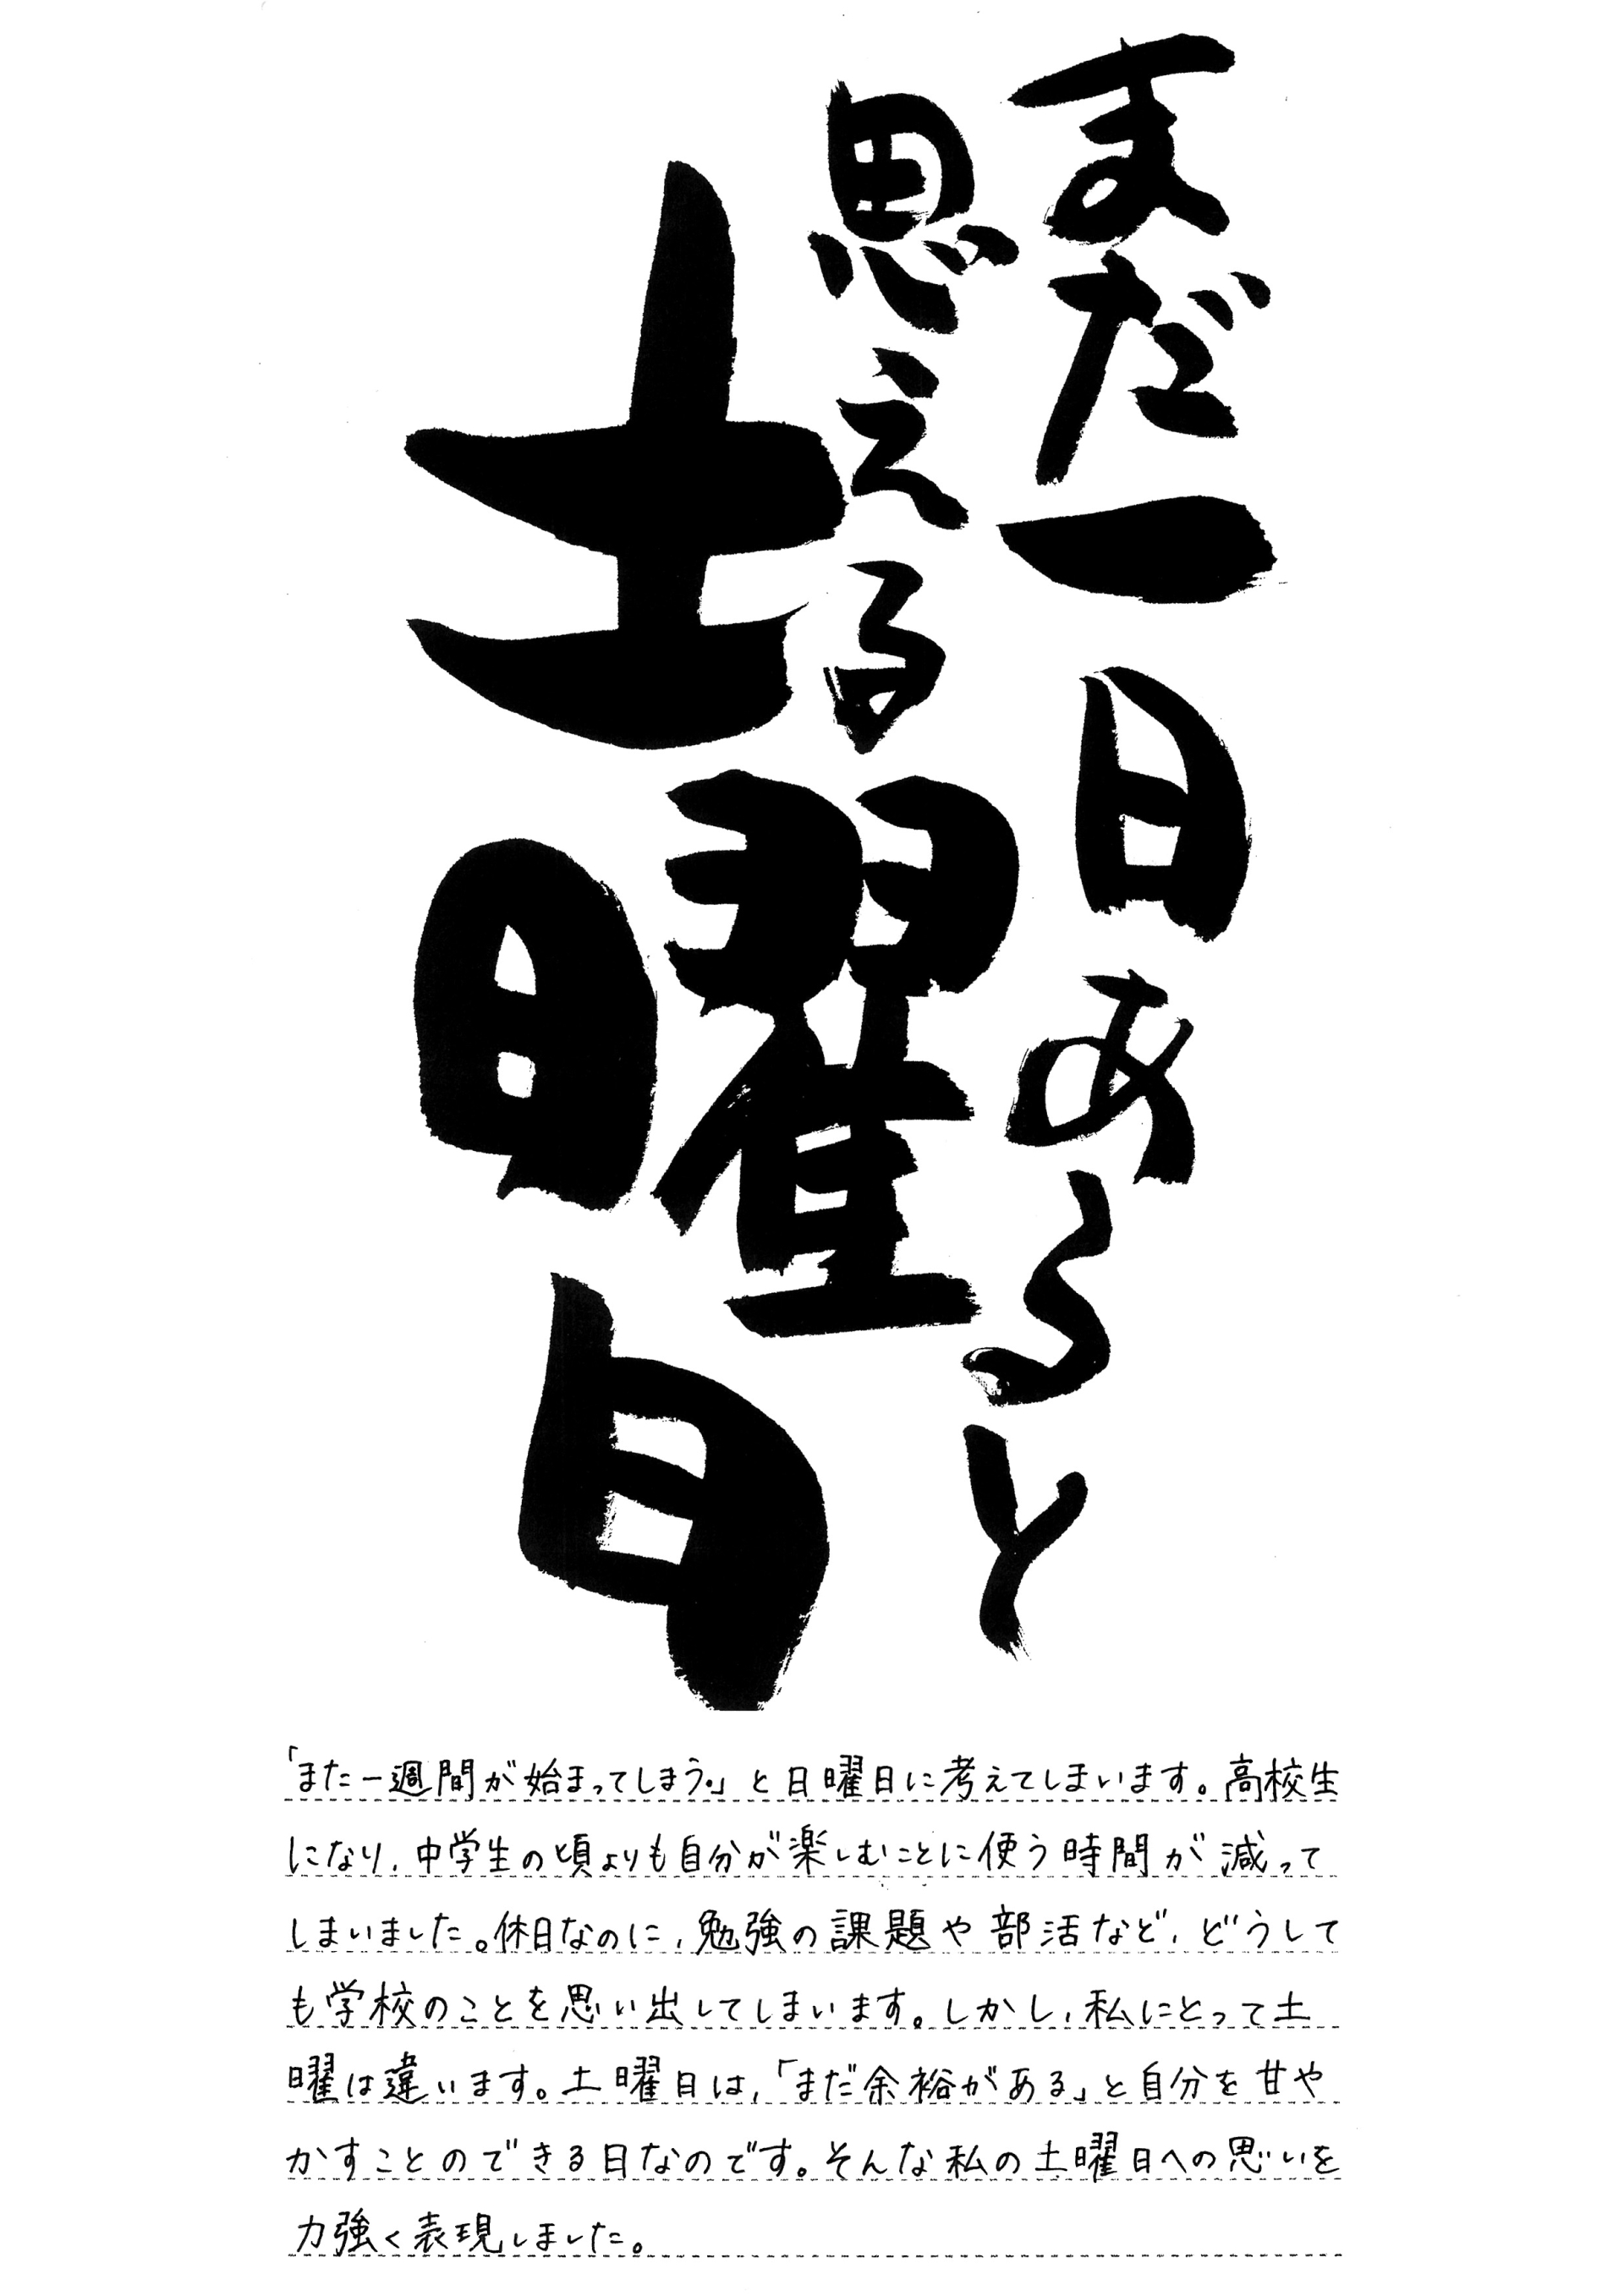 まだ一日あると
思える
土曜日
「また一週間が始まってしまう。」と日曜日に考えてしまいます。高校生
になり、中学生の頃よりも自分が楽しむことに使う時間が減って
しまいました。休日なのに、勉強の課題や部活など、どうして
も学校のことを思い出してしまいます。しかし、私にとって土
曜は違います。土曜日は、「まだ余裕がある」と自分を甘や
かすことのできる日なのです。そんな私の土曜日への思いを
力強く表現しました。